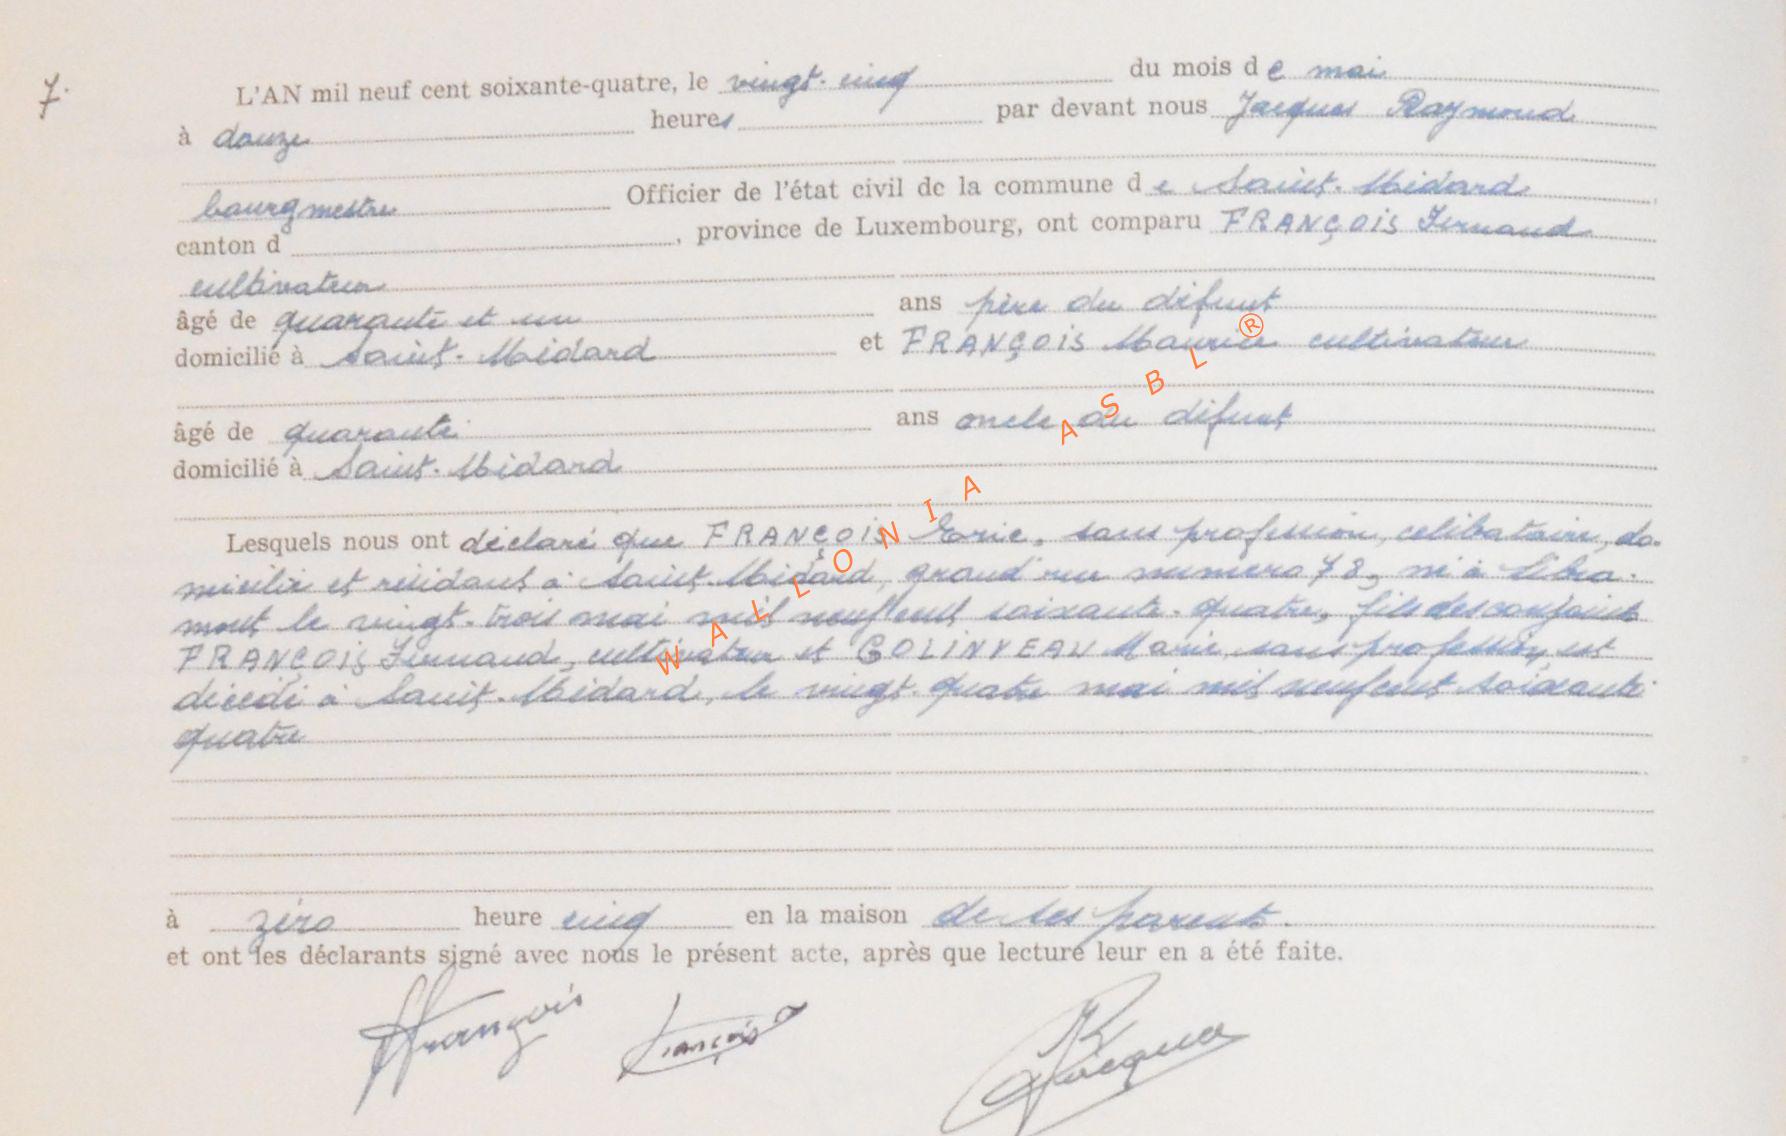 7.
L'AN mil neuf cent soixante-quatre, le vingt-cinq du mois de mai
à douze heures par devant nous Jacques Raymond
bourgmestre Officier de l'état civil de la commune de Saint-Médard
canton d , province de Luxembourg, ont comparu FRANÇOIS Fernand
cultivateur
âgé de quarante et un ans père du défunt
domicilié à Saint-Médard et FRANÇOIS Maurice cultivateur
âgé de quarante ans oncle du défunt
domicilié à Saint-Médard
Lesquels nous ont déclaré que FRANÇOIS Eric, sans profession, célibataire, do-
micilié et résidant à Saint-Médard, grand'rue numéro 78, né à Libra-
mont le vingt-trois mai mil neuf cent soixante-quatre, fils des conjoints
FRANÇOIS Fernand, cultivateur et GOLINVEAU Marie, sans profession, est
décédé à Saint-Médard, le vingt-quatre mai mil neuf cent soixante-
quatre
à zéro heure cinq en la maison de ses parents.
et ont les déclarants signé avec nous le présent acte, après que lecture leur en a été faite.
François François R Jacques
WALLONIA ASBL ®